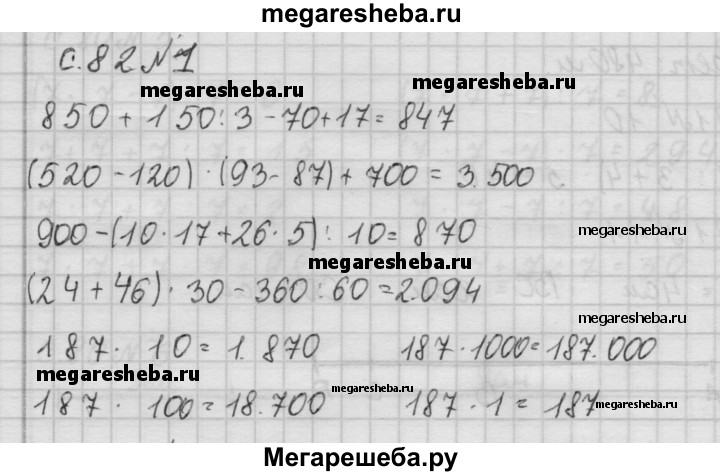 megaresheba.ru
с.82 №1
megaresheba.ru
megaresheba.ru
850 + 150 : 3 - 70 + 17 = 847
(520 - 120) · (93 - 87) + 700 = 3.500
900 - (10 · 17 + 26 · 5) : 10 = 870
megaresheba.ru
megaresheba.ru
(24 + 46) · 30 - 360 : 60 = 2.094
megaresheba.ru
187 · 10 = 1.870 187 · 1000 = 187.000
megaresheba.ru
megaresheba.ru
187 · 100 = 18.700 187 · 1 = 187
megaresheba.ru
Мегарешеба.ру